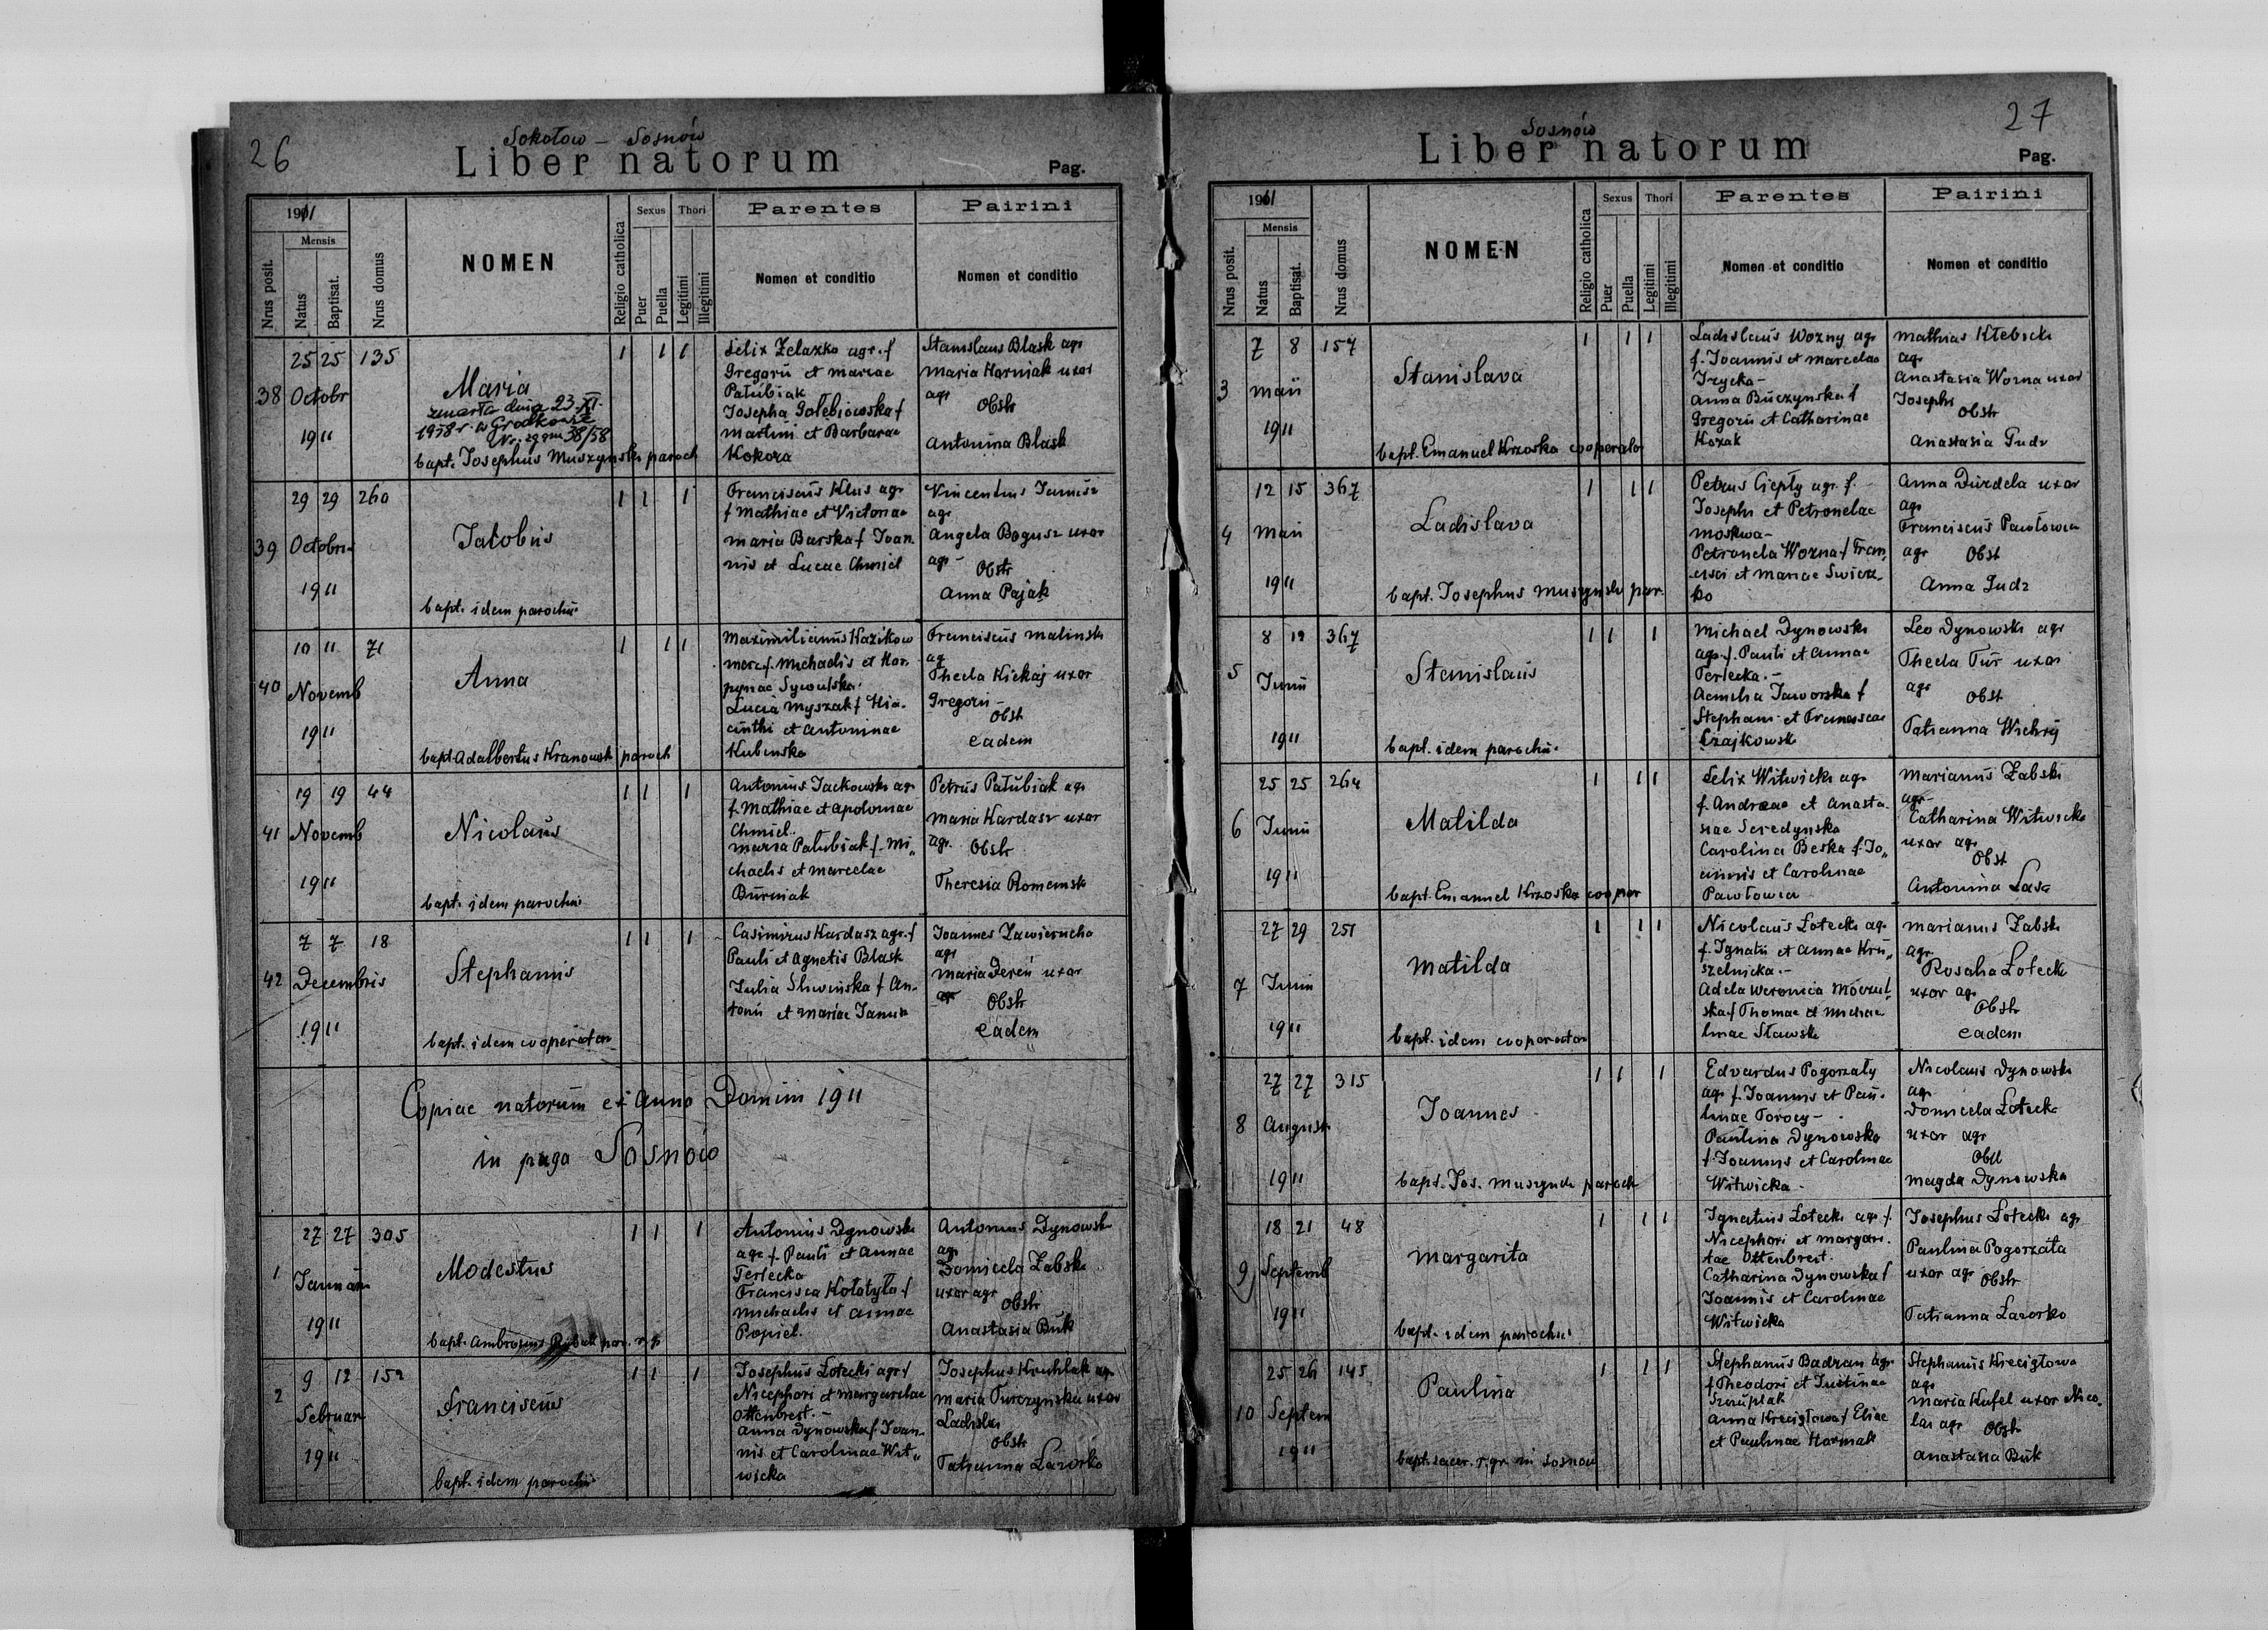 26
Sokołow - Sosnów
Liber natorum
Pag.
1911
Mensis
Nrus posit.
Natus
Baptisat.
Nrus domus
NOMEN
Religio catholica
Sexus
Puer
Puella
Thori
Legitimi
Illegitimi
Parentes
Nomen et conditio
Pairini
Nomen et conditio
38
25 25 135
Octobr
1911
Maria
zmarła dnia 23.XI.
1958 r. w Grodkowie
Nr. zgonu 38/58
bapt. Josephus Muszynski paroch
1 1 1
Felix Zelazko agr. f
Gregorii et mariae
Patubiak
Josepha Golebiowska f
martini et Barbarae
Kokora
Stanislaus Blask agr
maria Harniak uxor
agr
Obstr
Antonina Blask
39
29 29 260
Octobris
1911
Jacobus
bapt. idem parochus
1 1 1
Franciscus Klus agr
f Mathiae et Victoriae
maria Barska f Joan.
nis et Luciae Chmiel
Vincentius Janusz
agr
Angela Bogusz uxor
agr -
Obstr
Anna Pajak
40
10 11 71
Novemb
1911
Anna
bapt. Adalbertus Kranowsk paroch
1 1 1
Maximilianus Kazikow
merc f. Michaelis et Hor.
pynae Sywulska.
Lucia Myszak f Hia.
cinthi et Antoninae
Kubinska
Franciscus malinsk
ag
Thecla Kickaj uxor
Gregorii -
Obstr
eadem
41
19 19 44
Novemb
1911
Nicolaus
bapt. idem parochus
1 1 1
Antonius Jackowski ag
f. Mathiae et Apoloniae
Chmiel.
maria Patubiak f. Mi„
chaelis et marcelae
Burniak
Petrus Patubiak agr
Maria Kardasz uxor
agr. Obstr
Theresia Romensk
42
7 7 18
Decembris
1911
Stephanus
bapt. idem cooperator
1 1 1
Casimirus Kardasz agr. f
Pauli et Agnetis Blask
Julia Sliwinska f An.
tonii et mariae Janusz
Joannes Zawierucha
agr
maria Dereń uxor
agr
Obstr
eadem
Copiae natorum ex Anno Domini 1911
in pago Sosnow
1
27 27 305
Januari
1911
Modestus
bapt. Ambrosius Rybak par. r. g.
1 1 1
Antonius Dynowski
agr. f. Pauli et Annae
Terlecka
Francisca Kołotyła f
Michaelis et Annae
Popiel.
Antonius Dynowsk
agr
Domicela Zabska
uxor agr
Obstr
Anastasia Buk
2
9 12 152
Februar
1911
Franciscus
bapt. idem parochus
1 1 1
Josephus Łotecki agr f
Nicephori et margaritae
Ottenbreit. -
Anna Dynowska f. Joan.
nis et Carolinae Wit„
wicka
Josephus Kruhlak ag
maria Turczynska uxor
Ladislai
Obstr
Tatianna Lazorko
27
Sosnów
Liber natorum
Pag.
1911
Mensis
Nrus posit.
Natus
Baptisat.
Nrus domus
NOMEN
Religio catholica
Sexus
Puer
Puella
Thori
Legitimi
Illegitimi
Parentes
Nomen et conditio
Pairini
Nomen et conditio
3
7 8 157
maii
1911
Stanislava
bapt. Emanuel Krzoska cooperator
1 1 1
Ladislaus Wozny agr
f. Joannis et marcelae
Irzycka -
Anna Buczynska f
Gregorii et Catharinae
Kozak
Mathias Klebicki
agr
Anastasia Worna uxor
Josephi
Obstr
Anastasia Gudz
4
12 15 367
Maii
1911
Ladislava
bapt. Josephus Muszynski par.
1 1 1
Petrus Ciepły agr. f.
Josephi et Petronelae
moskwa -
Petronela Wozna f Fran„
cisci et Mariae Swierz„
ko
Anna Durdela uxor
agr
Franciscus Pawłowicz
agr Obst
Anna Gudz
5
8 12 367
Junii
1911
Stanislaus
bapt. idem parochus.
1 1 1
Michael Dynowski
agr. f. Pauli et Annae
Terlecka. -
Aemilia Jaworska f
Stephani et Franciscae
Czajkowsk
Leo Dynowski agr
Thecla Tur uxor
agr
Obst
Tatianna Wichrij
6
25 25 264
Junii
1911
Matilda
bapt. Emanuel Krzoska cooper
1 1 1
Felix Witwicki agr
f. Andreae et Anasta.
siae Seredynska
Carolina Beska f. Jo„
annis et Carolinae
Pawłowicz
Marianus Zabski
agr
Catharina Witwicka
uxor agr
Obst
Antonina Lasz
7
27 29 251
Junii
1911
Matilda
bapt. idem cooperator
1 1 1
Nicolaus Łotecki ag.
f. Ignatii et Annae Kru„
szelnicka. -
Adela Weronica Moczul
ska f Thomae et Michae
linae Stawsk
marianus Zabski
agr
Rosalia Łotecki
uxor agr
Obstr
eadem
8
27 27 315
August
1911
Joannes
bapt. Jos. Muszynsk paroch
1 1 1
Edvardus Pogorzały
agr f. Joannis et Pau.
linae Torocy -
Paulina Dynowska
f. Joannis et Carolinae
Witwicka -
Nicolaus Dynowski
agr
Domicela Łotecka
uxor agr
Obst
Magda Dynowska
9
18 21 48
Septemb
1911
Margarita
bapt. idem parochus
1 1 1
Ignatius Łotecki agr f.
Nicephori et margari.
tae Ottenbreit.
Catharina Dynowska f
Joannis et Carolinae
Witwicka
Josephus Łotecki agr
Paulina Pogorzała
uxor agr Obstr
Tatianna Lazorko
10
25 26 145
Septem
1911
Paulina
bapt. sacer. r. gr. in Sosnow
1 1 1
Stephanus Badran agr
f Theodori et Justinae
Szruptak
Anna Krecigłowa f Eliae
et Paulinae Harmak
Stephanus Krecigłowa
agr
Maria Kufel uxor Nico„
lai agr Obstr
Anastasia Buk